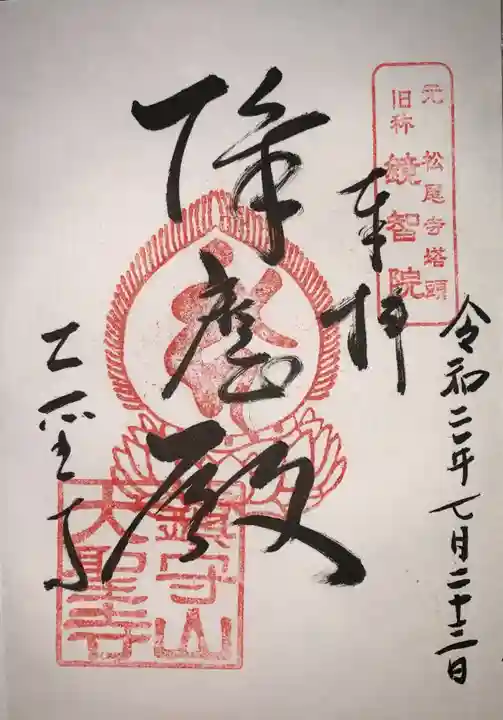 元 松尾寺塔頭
旧称 鏡智院
奉拝
令和二年七月二十三日
降魔殿
大聖寺
鎮守山
大聖寺